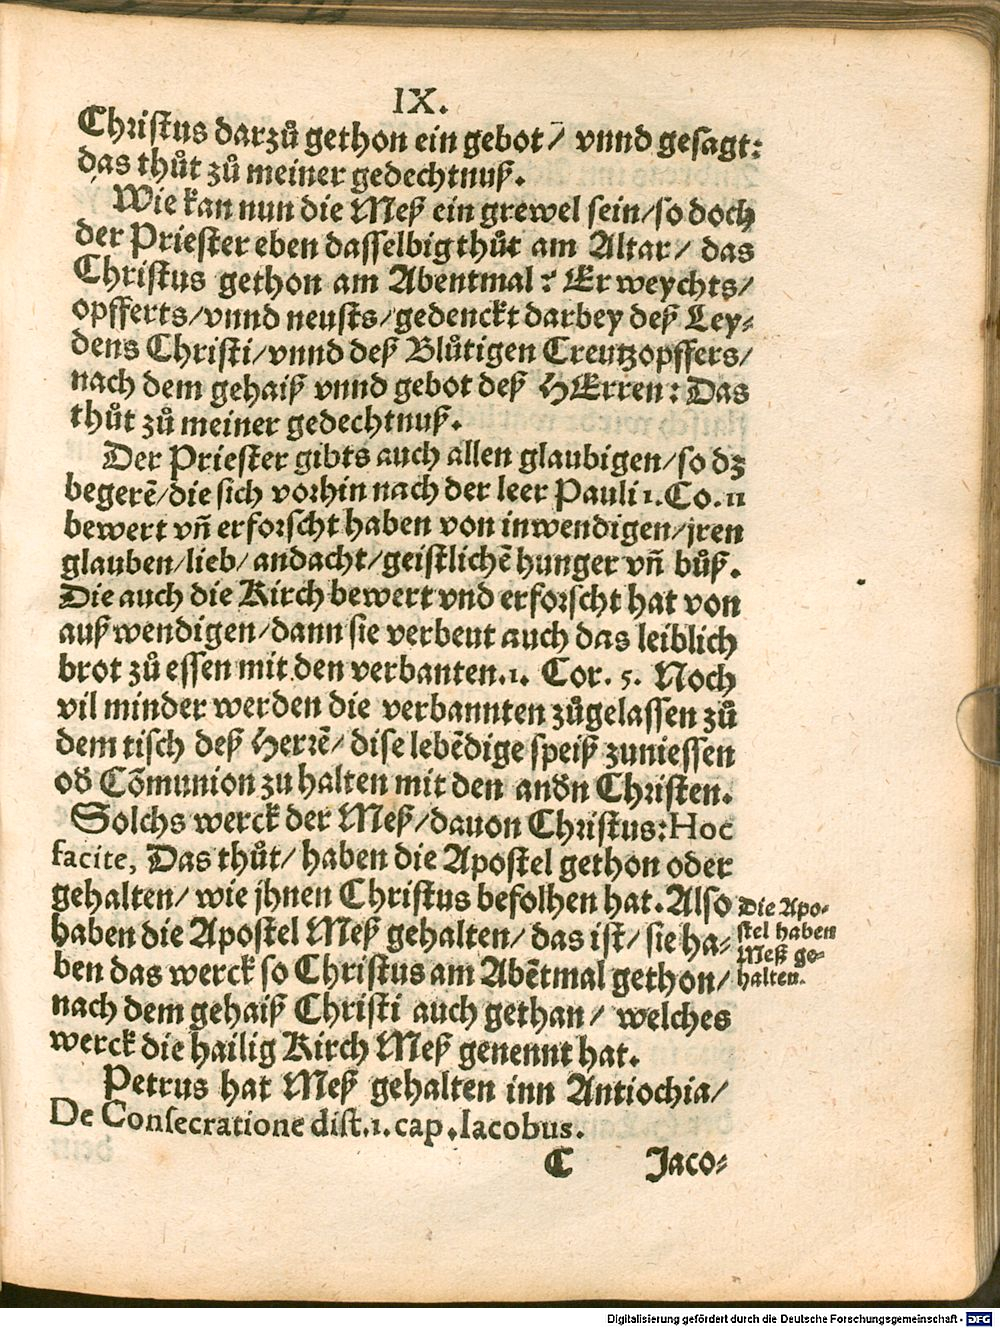 IX.
Christus darzů gethon ein gebot/ vnnd gesagt:
das thůt zů meiner gedechtnuß.
Wie kan nun die Meß ein grewel sein/so doch
der Priester eben dasselbig thůt am Altar/ das
Christus gethon am Abentmal? Er weychts/
opfferts/vnnd neusts/gedenckt darbey deß Ley⸗
dens Christi/vnnd deß Blůtigen Creutzopffers/
nach dem gehaiß vnnd gebot deß HErren: Das
thůt zů meiner gedechtnuß.
Der Priester gibts auch allen glaubigen/so dz
begerē/die sich vorhin nach der leer Pauli 1.Co.11
bewert vñ erforscht haben von inwendigen/jren
glauben/lieb/andacht/geistlichē hunger vñ bůß.
Die auch die Kirch bewert vnd erforscht hat von
außwendigen/dann sie verbeut auch das leiblich
brot zů essen mit den verbanten.1. Cor. 5. Noch
vil minder werden die verbannten zůgelassen zů
dem tisch deß Herrē/ dise lebēdige speiß zuniessen
oď Cōmunion zu halten mit den anďn Christen.
Solchs werck der Meß/dauon Christus:Hoc
facite, Das thůt/ haben die Apostel gethon oder
gehalten/ wie jhnen Christus befolhen hat.Also
haben die Apostel Meß gehalten/ das ist/ sie ha⸗
ben das werck so Christus am Abētmal gethon/
nach dem gehaiß Christi auch gethan/ welches
werck die hailig Kirch Meß genennt hat.
Die Apo⸗
stel haben
Meß ge⸗
halten.
Petrus hat Meß gehalten inn Antiochia/
De Consecratione dist.1.cap.Iacobus.
C Jaco⸗
Digitalisierung gefördert durch die Deutsche Forschungsgemeinschaft - DFG